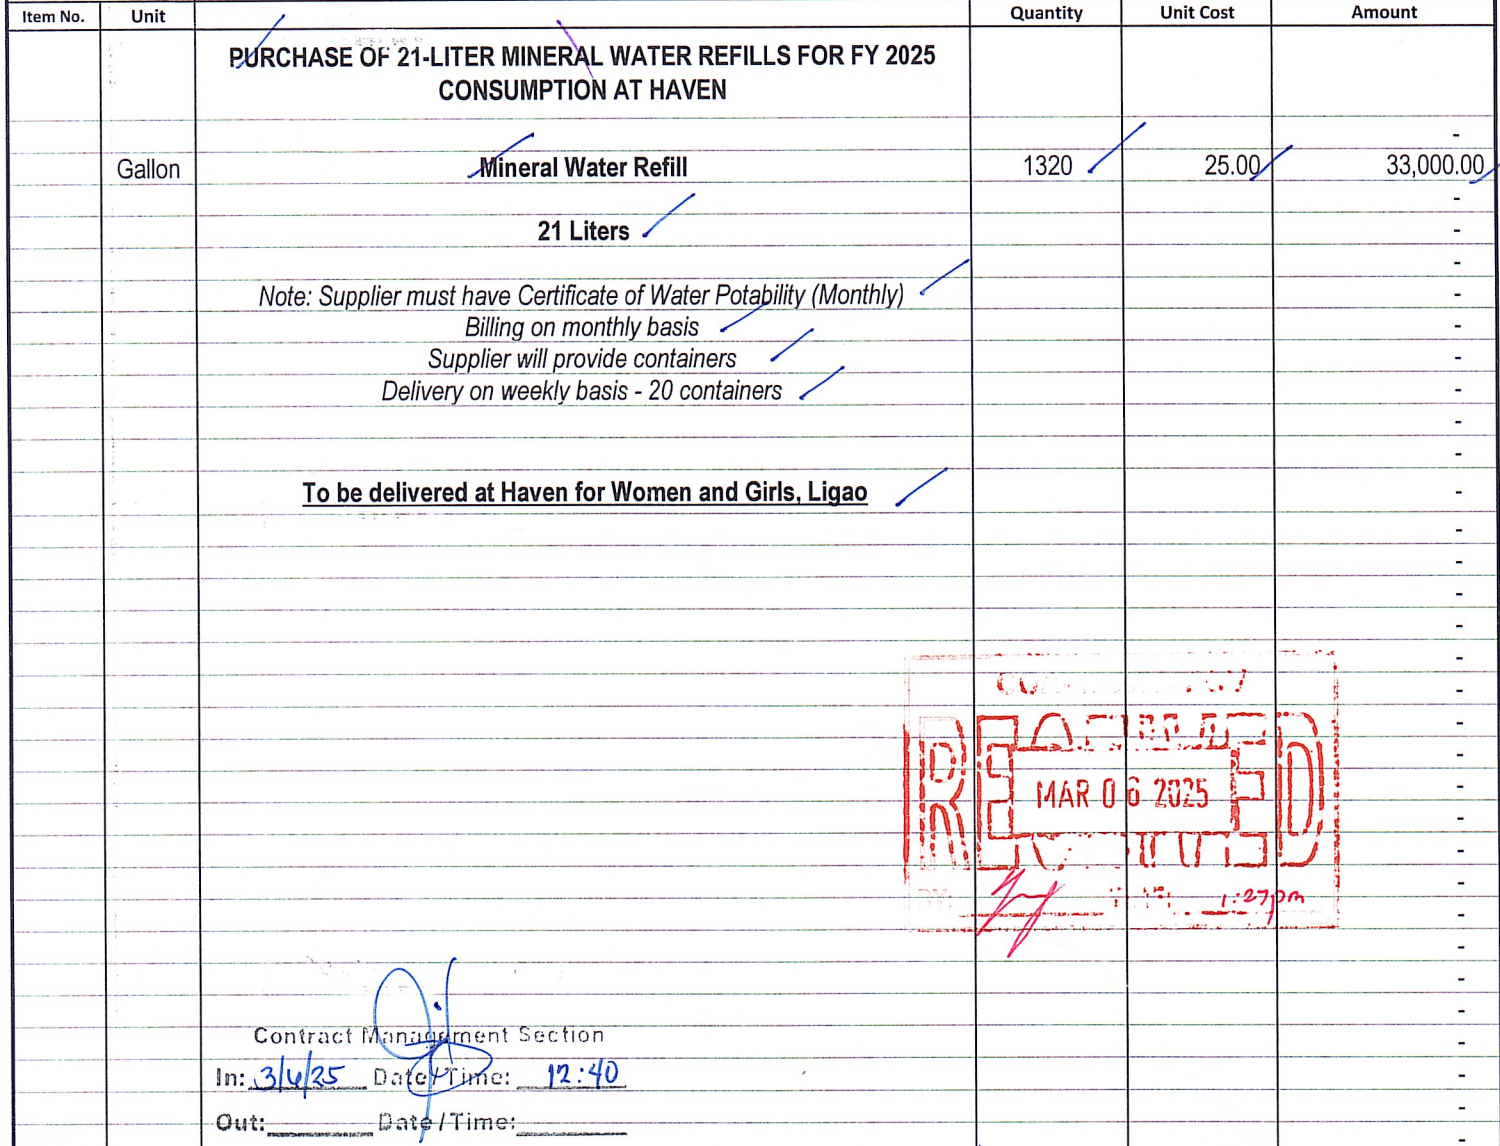 Item No. Unit Quantity Unit Cost Amount
PURCHASE OF 21-LITER MINERAL WATER REFILLS FOR FY 2025
CONSUMPTION AT HAVEN
-
Gallon Mineral Water Refill 1320 25.00 33,000.00
-
21 Liters -
-
Note: Supplier must have Certificate of Water Potability (Monthly) -
Billing on monthly basis -
Supplier will provide containers -
Delivery on weekly basis - 20 containers -
-
-
To be delivered at Haven for Women and Girls, Ligao -
-
-
-
-
-
-
-
RECEIVED
-
MAR 06 2025 -
-
-
-
1:27pm -
-
-
-
Contract Management Section -
In: 3/6/25 Date/Time: 12:40 -
Out: Date/Time: -
-